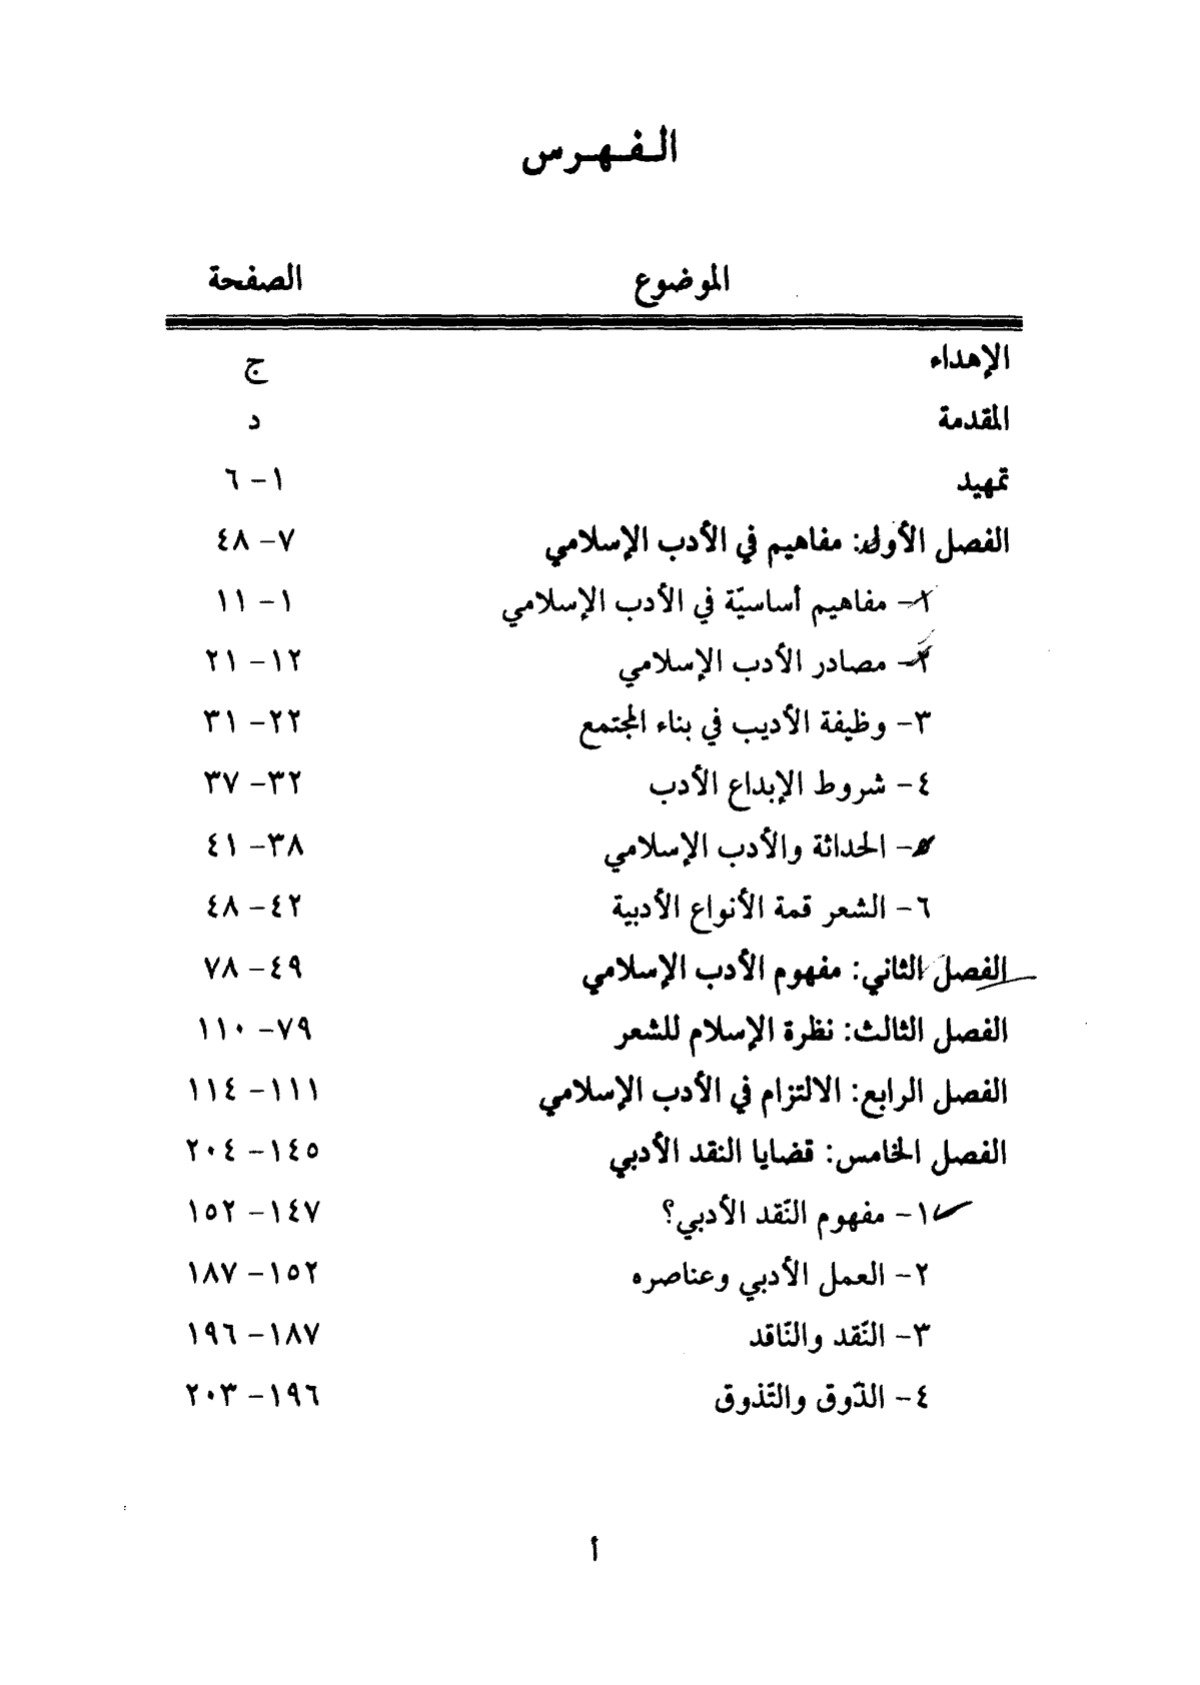 الفهرس
الموضوع الصفحة
الإهداء ج
المقدمة د
تمهيد ١- ٦
الفصل الأول: مفاهيم في الأدب الإسلامي ٧- ٤٨
١- مفاهيم أساسيّة في الأدب الإسلامي ١- ١١
٢- مصادر الأدب الإسلامي ١٢- ٢١
٣- وظيفة الأديب في بناء المجتمع ٢٢- ٣١
٤- شروط الإبداع الأدب ٣٢- ٣٧
٥- الحداثة والأدب الإسلامي ٣٨- ٤١
٦- الشعر قمة الأنواع الأدبية ٤٢- ٤٨
الفصل الثاني: مفهوم الأدب الإسلامي ٤٩- ٧٨
الفصل الثالث: نظرة الإسلام للشعر ٧٩- ١١٠
الفصل الرابع: الالتزام في الأدب الإسلامي ١١١- ١١٤
الفصل الخامس: قضايا النقد الأدبي ١٤٥- ٢٠٤
١- مفهوم النّقد الأدبي؟ ١٤٧- ١٥٢
٢- العمل الأدبي وعناصره ١٥٢- ١٨٧
٣- النّقد والنّاقد ١٨٧- ١٩٦
٤- الذّوق والتّذوق ١٩٦- ٢٠٣
أ